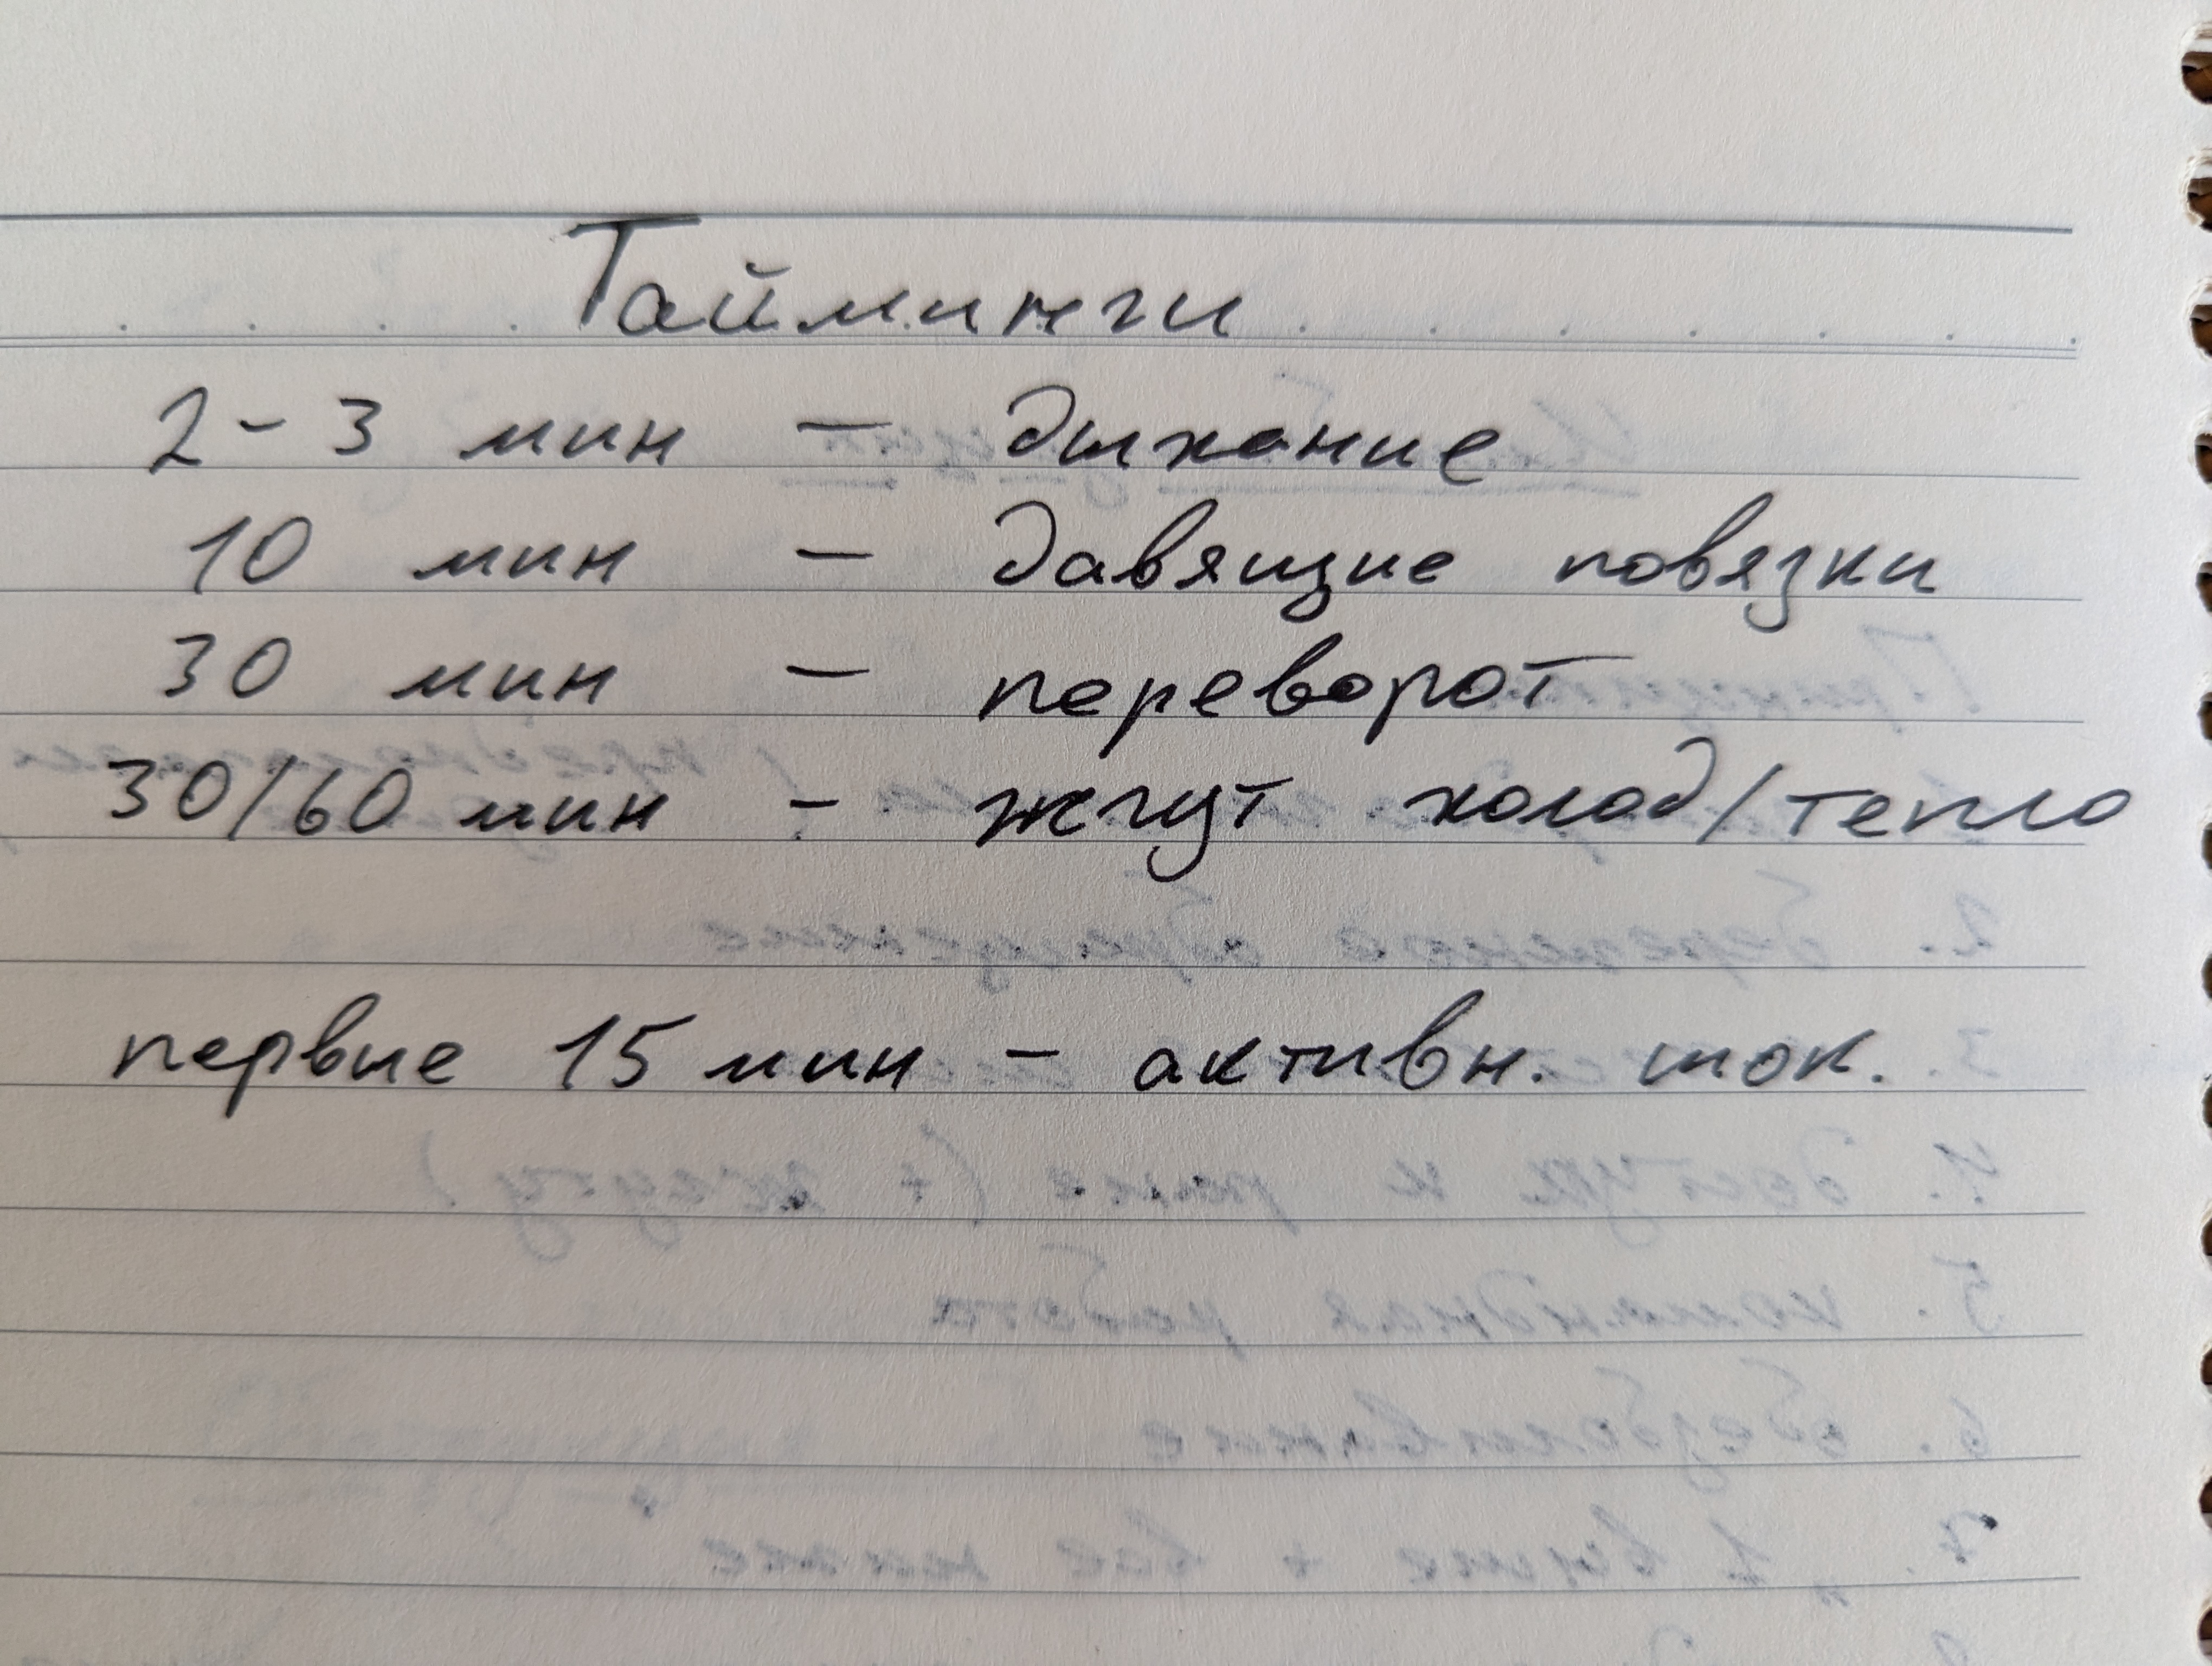 Тайминги
2-3 мин - дыхание
10 мин - давящие повязки
30 мин - переворот
30/60 мин - жгут холод/тепло
первые 15 мин - активн. шок.